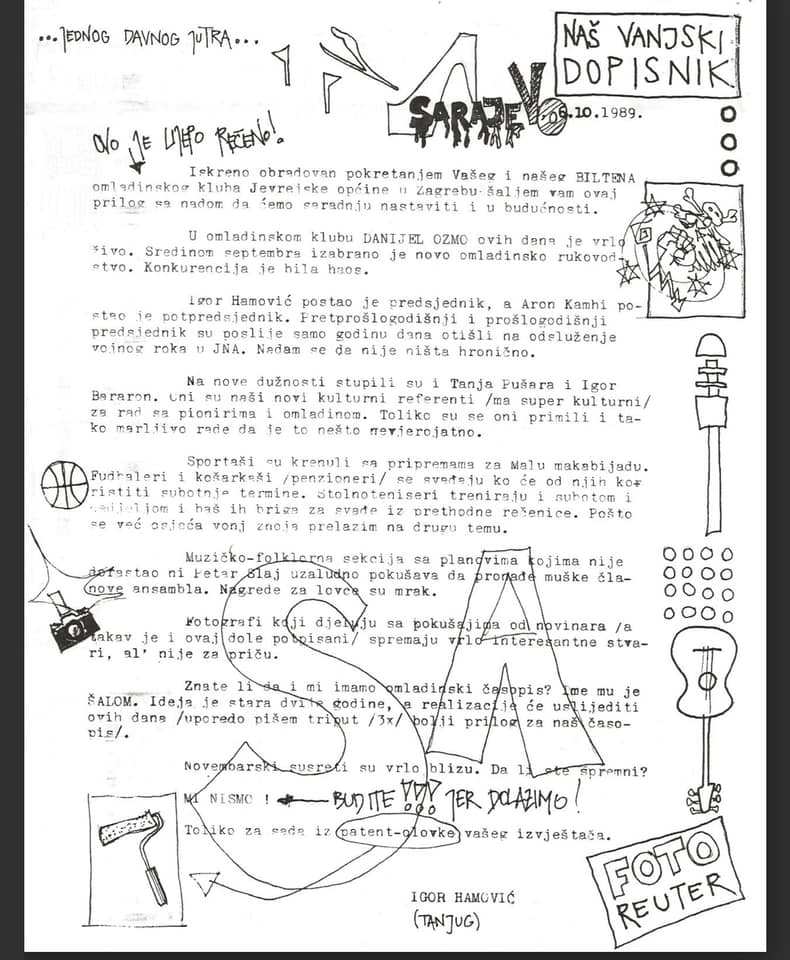 ...JEDNOG DAVNOG JUTRA...
NAŠ VANJSKI
DOPISNIK
SARAJEVO, 06.10.1989.
OVO JE LIJEPO REČENO!
Iskreno obradovan pokretanjem Vašeg i našeg BILTENA
omladinskog kluba Jevrejske općine u Zagrebu šaljem vam ovaj
prilog sa nadom da ćemo saradnju nastaviti i u budućnosti.
U omladinskom klubu DANIJEL OZMO ovih dana je vrlo
živo. Sredinom septembra izabrano je novo omladinsko rukovod-
stvo. Konkurencija je bila haos.
Igor Hamović postao je predsjednik, a Aron Kamhi po-
stao je potpredsjednik. Pretprošlogodišnji i prošlogodišnji
predsjednik su poslije samo godinu dana otišli na odsluženje
vojnog roka u JNA. Nadam se da nije ništa hronično.
Na nove dužnosti stupili su i Tanja Pušara i Igor
Bararon. Oni su naši novi kulturni referenti /ma super kulturni/
za rad sa pionirima i omladinom. Toliko su se oni primili i ta-
ko marljivo rade da je to nešto nevjerojatno.
Sportaši su krenuli sa pripremama za Malu makabijadu.
Fudbaleri i košarkaši /penzioneri/ se svađaju ko će od njih kor
ristiti subotnje termine. Stolnoteniseri treniraju i subotom i
nedjeljom i baš ih briga za svađe iz prethodne rečenice. Pošto
se već osjeća vonj znoja prelazim na drugu temu.
Muzičko-folklorna sekcija sa planovima kojima nije
dorastao ni Petar Slaj uzaludno pokušava da pronađe muške čla-
nove ansambla. Nagrede za lovce su mrak.
Fotografi koji djeluju sa pokušajima od novinara /a
takav je i ovaj dole potpisani/ spremaju vrlo interesantne stva-
ri, al' nije za priču.
Znate li da i mi imamo omladinski časopis? Ime mu je
ŠALOM. Ideja je stara dvije godine, a realizacija će uslijediti
ovih dana /uporedo pišem triput /3x/ bolji prilog za naš časo-
pis/.
Novembarski susreti su vrlo blizu. Da li ste spremni?
MI NISMO ! BUDITE !!! JER DOLAZIMO!
Toliko za sada iz patent-olovke vašeg izvještača.
SA
IGOR HAMOVIĆ
(TANJUG)
FOTO
REUTER